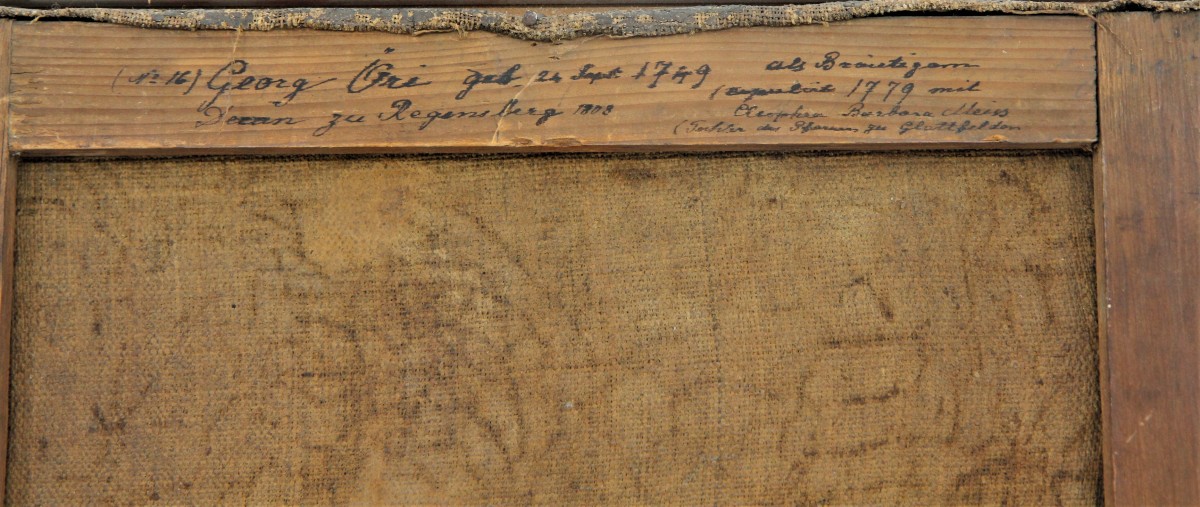 (No 16) Georg Ori geb. 24 Sept. 1749
Decan zu Regensberg 1808
als Bräutigam
(copulirt 1779 mit
Cleophea Barbara Meiss
(Tochter des Pfarrers zu Glattfelden